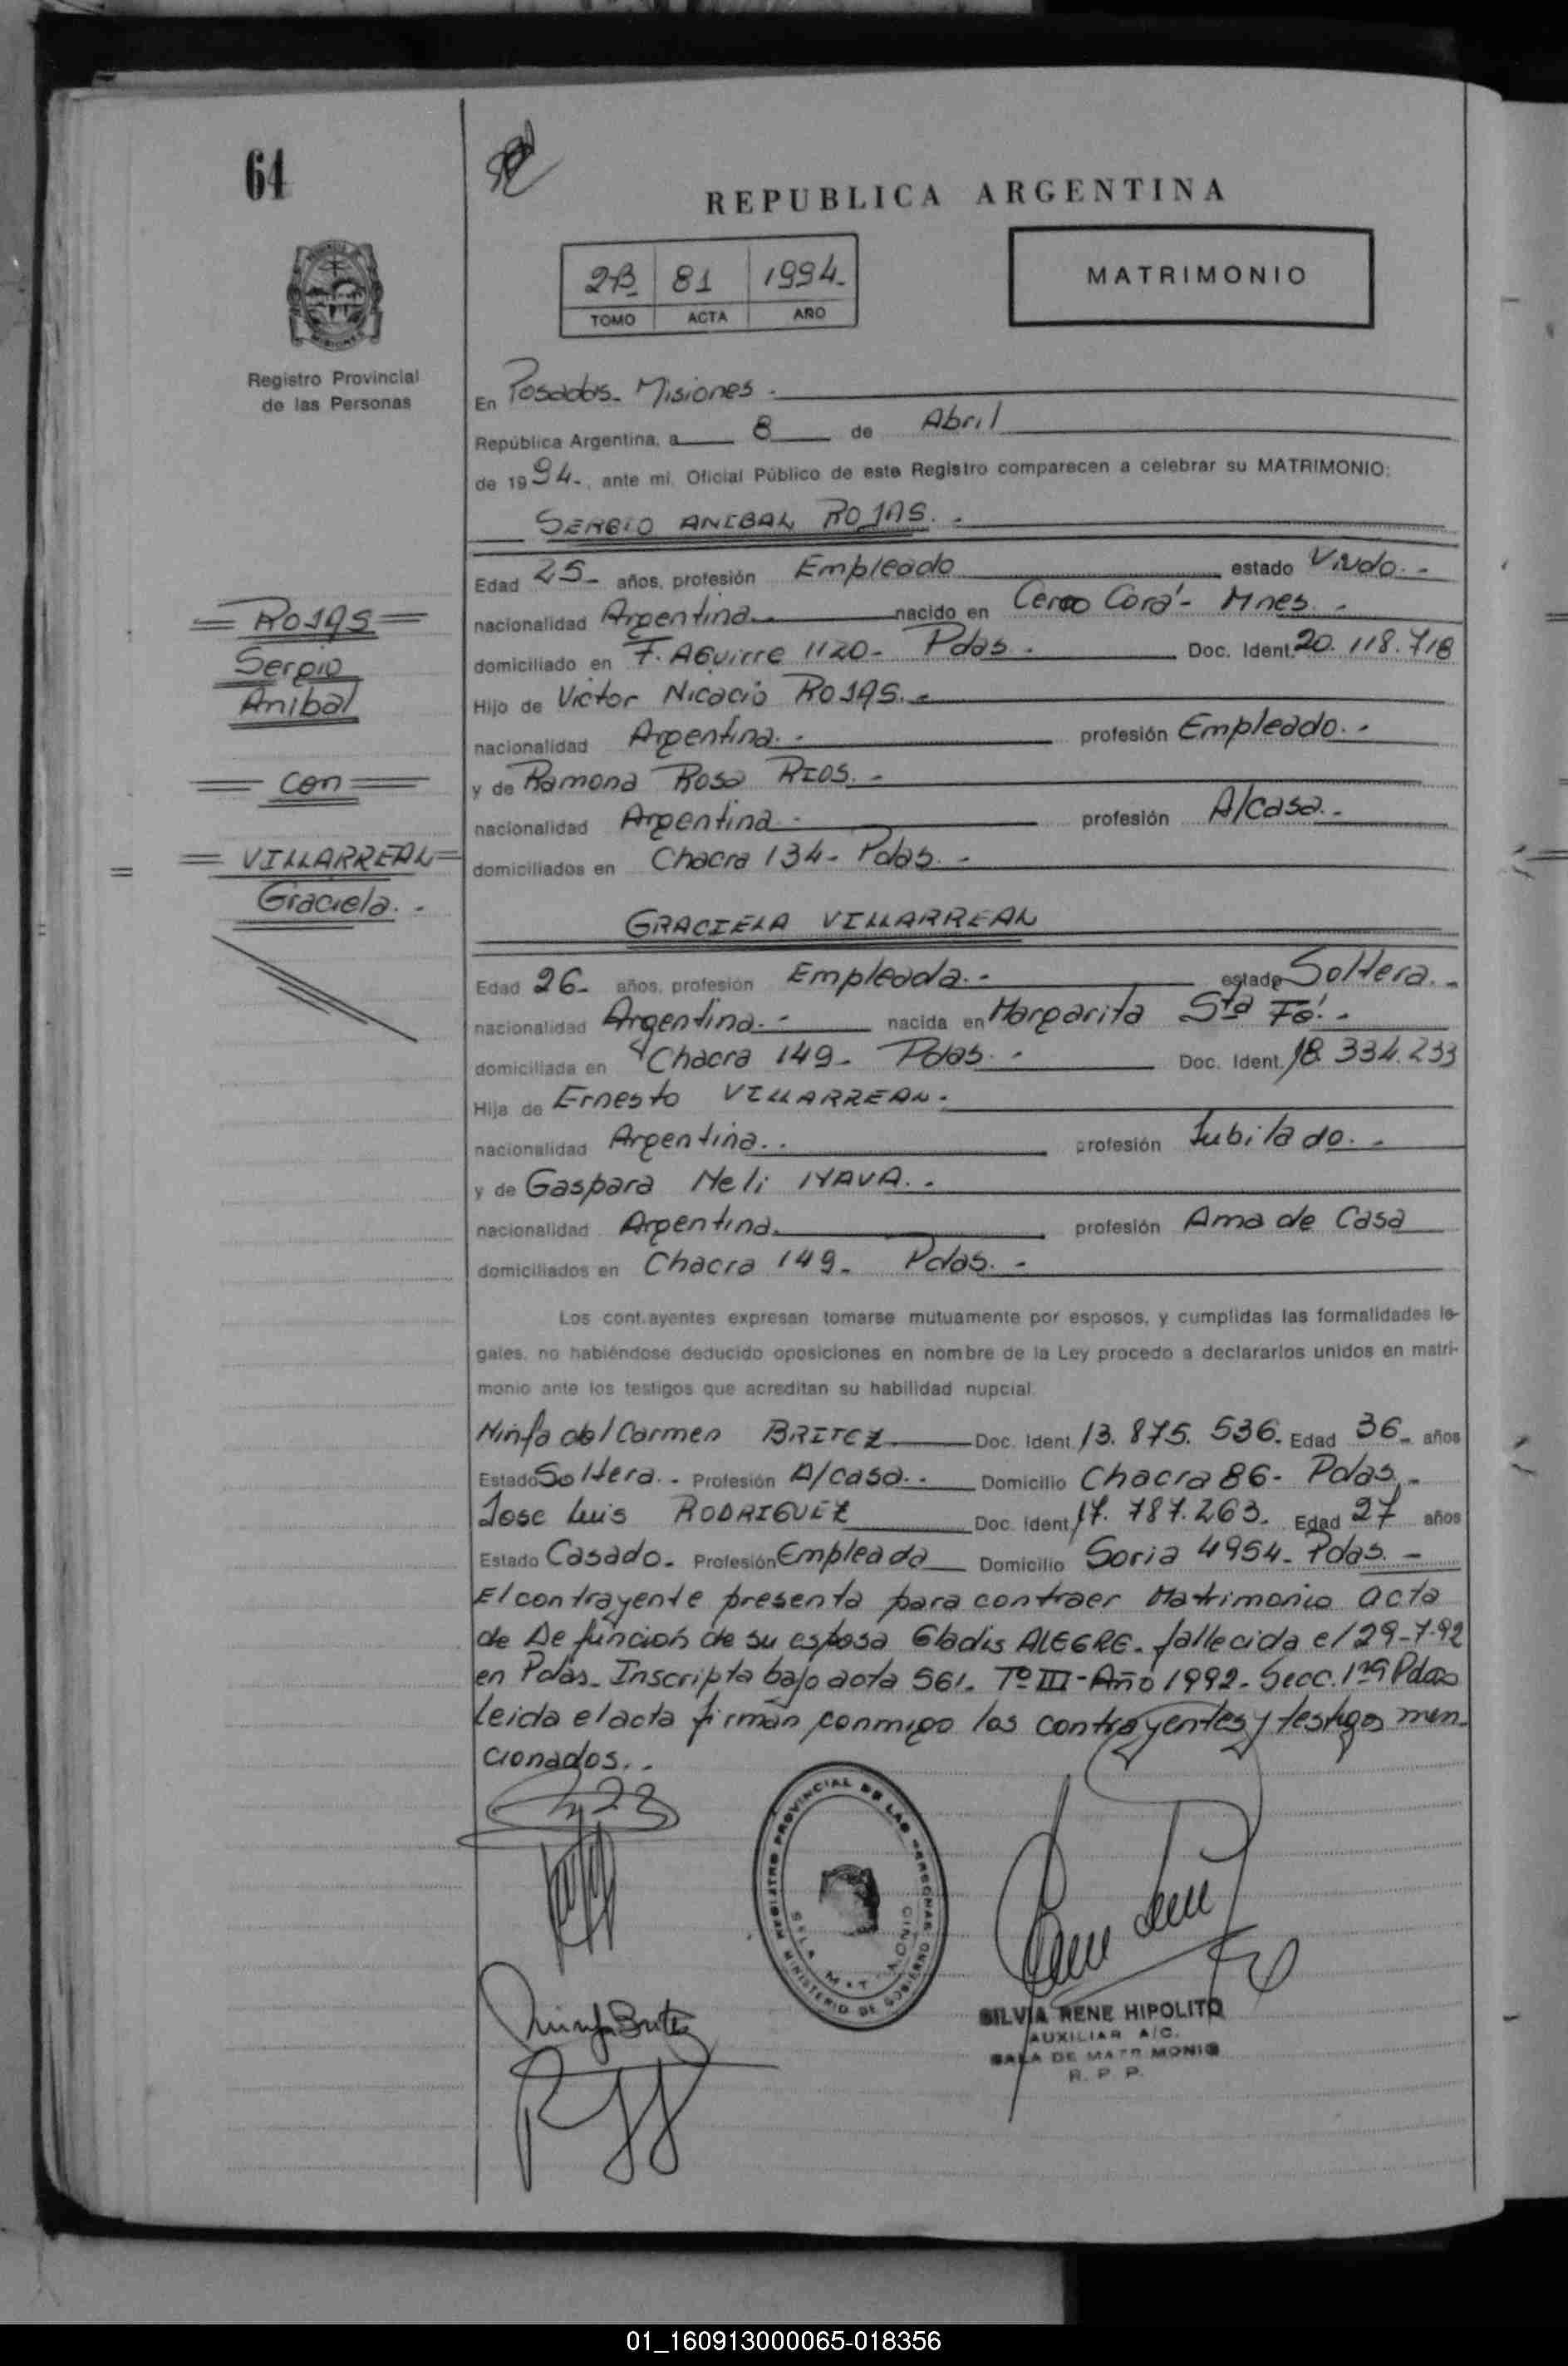 64
REPUBLICA ARGENTINA
2B 81 1994.-
TOMO ACTA AÑO
MATRIMONIO
Registro Provincial
de las Personas
En Posadas- Misiones.-
República Argentina, a 8 de Abril
de 1994.-, ante mí, Oficial Público de este Registro comparecen a celebrar su MATRIMONIO:
SERGIO ANIBAL ROJAS.-
Edad 25- años, profesión Empleado estado Viudo.-
nacionalidad Argentina.- nacido en Cerro Corá- Mnes.-
domiciliado en F. Aguirre 1120- Pdas.- Doc. Ident. 20.118.718
Hijo de Victor Nicacio ROJAS.-
nacionalidad Argentina.- profesión Empleado.-
y de Ramona Rosa RIOS.-
nacionalidad Argentina.- profesión A/casa.-
domiciliados en Chacra 134- Pdas.-
= ROJAS =
Sergio
Anibal
= con =
= VILLARREAL =
Graciela.-
GRACIELA VILLARREAL
Edad 26- años, profesión Empleada.- estado Soltera.-
nacionalidad Argentina.- nacida en Margarita Sta Fé.-
domiciliada en Chacra 149- Pdas.- Doc. Ident. 18.334.233
Hija de Ernesto VILLARREAL.-
nacionalidad Argentina.- profesión Jubilado.-
y de Gaspara Neli NAVA.-
nacionalidad Argentina. profesión Ama de Casa
domiciliados en Chacra 149- Pdas.-
Los contrayentes expresan tomarse mutuamente por esposos, y cumplidas las formalidades le-
gales, no habiéndose deducido oposiciones en nombre de la Ley procedo a declararlos unidos en matri-
monio ante los testigos que acreditan su habilidad nupcial.
Ninfa del Carmen BRITEZ Doc. Ident. 13.875.536. Edad 36- años
Estado Soltera.- Profesión A/casa.- Domicilio Chacra 86- Pdas.-
Jose Luis RODRIGUEZ Doc. Ident. 17.787.263. Edad 27 años
Estado Casado- Profesión Empleado Domicilio Soria 4954- Pdas.-
El contrayente presenta para contraer Matrimonio acta
de Defunción de su esposa Gladis ALEGRE. fallecida el 29-7-92
en Pdas- Inscripta bajo acta 561- Tº III- Año 1992- Secc. 1ra Pdas
Leida el acta firman conmigo los contrayentes y testigos men-
cionados.-
REGISTRO PROVINCIAL DE LAS PERSONAS
MINISTERIO DE GOBIERNO
Ninfa Britez
SILVIA RENE HIPOLITO
AUXILIAR A/C.
SALA DE MATRIMONIO
R. P. P.
01_160913000065-018356